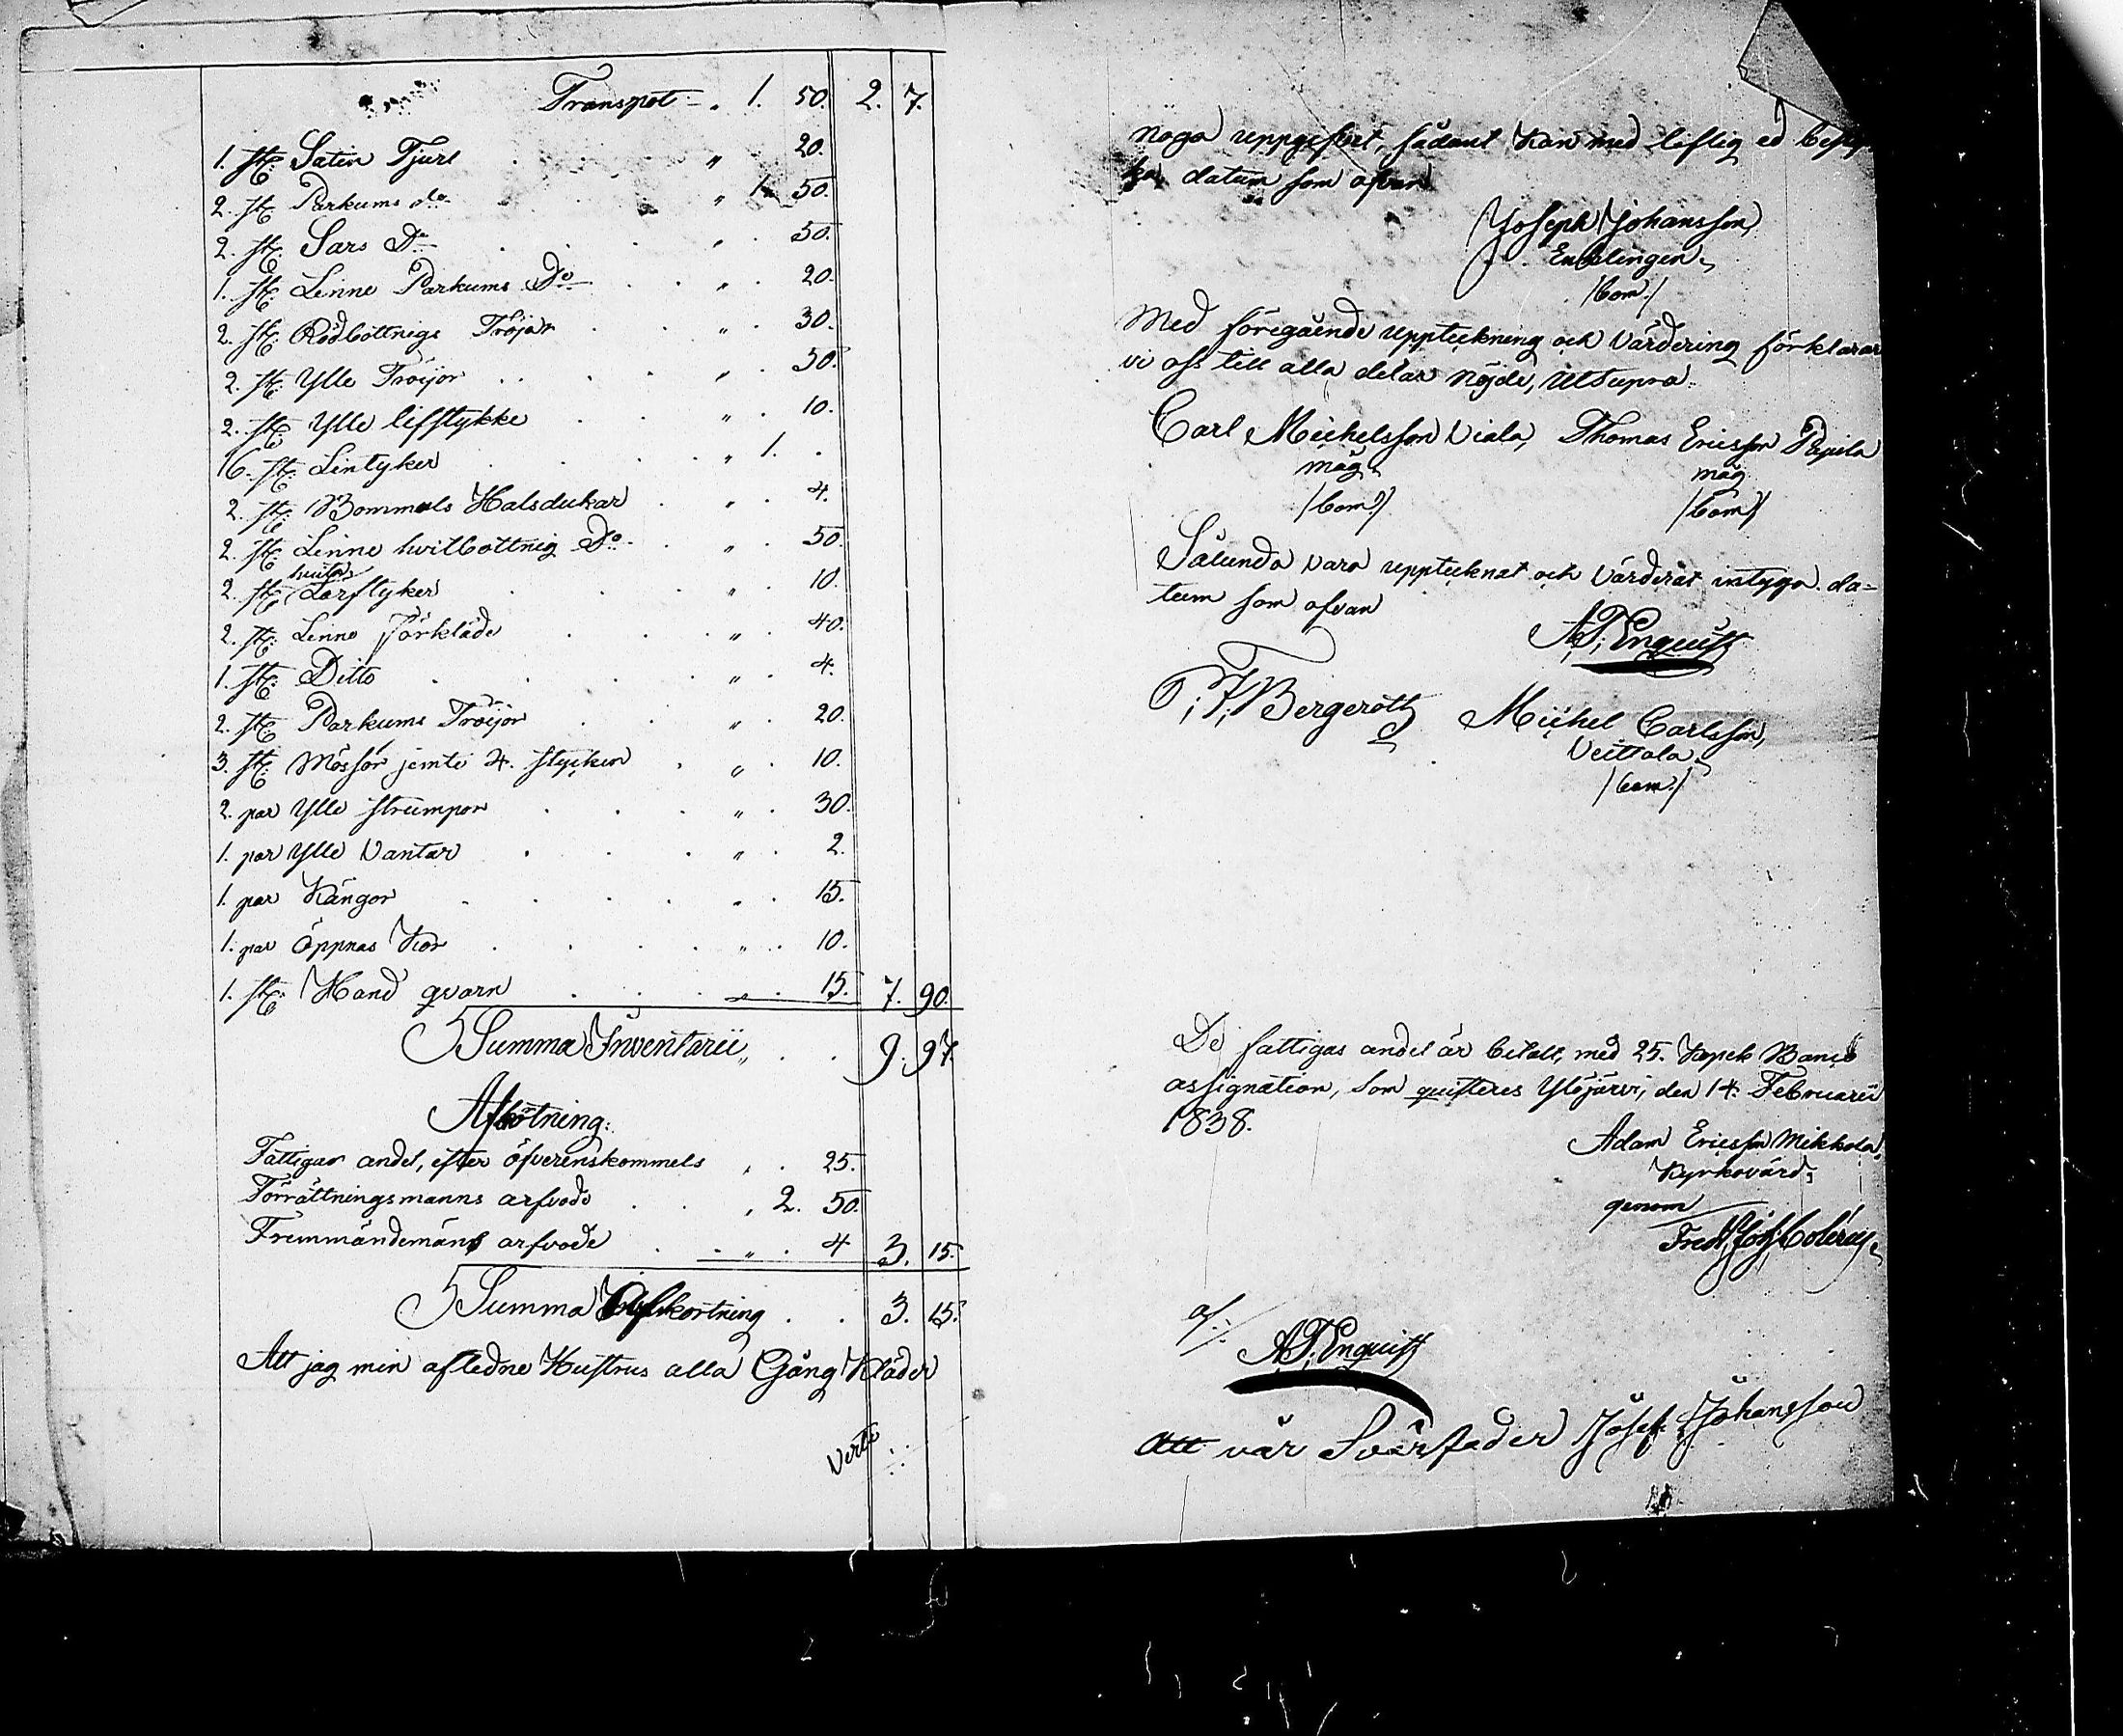 Transpot „ 1. 50. 2. 7.
1. st: Satin Tjurt „ 20.
2. st: Parkums do „ 1. 50.
2. st: Sars Do „ 50.
1. st: Linne Parkums Do „ 20.
2. st: Rödbottnige Tröjor „ 30.
2. st: Ylle Tröijor „ 50.
2. st: Ylle lifstykke „ 10.
16. st: Lintyker „ 1. .
2. st: Bommuls Halsdukar „ 4.
2. st: Linne hvitbottnig Do „ 50.
hvita
2. st: Lärftyker „ 10.
2. st: Linne Förkläde „ 40.
1. st: Ditto „ 4.
2. st: Parkums Tröijor „ 20.
3. st: Mössor jemte 4. stycken „ 10.
2. par Ylle strumpor „ 30.
1. par Ylle Vantar „ 2.
1. par Kängor „ 15.
1. par Öppnas Kor „ 10.
1. st: Hand qvarn „ 15. 7. 90.
Summa Inventarii „ 9. 97.
Afkortning:
Fattigas andel, efter öfverenskommels „ 25.
Förrättningsmanns arfvode „ 2. 50.
Fremmandemäns arfvode „ 4 3. 15.
Summa Afkortning 3. 15.
Att jag min afledne Hustrus alla Gång Kläder
Verte
noga uppgifvit, sådant kan med liflig ed
datum som ofvan
Joseph Johansson
Enkelingen
/bom:/
Med föregående uppteckning och Värdering förklarar
vi oss till alla delar nöjde, Utsupra.
Carl Michelsson Viala, Thomas Ericsson Papila
måg måg
/bom:/ /bom:/
Sålunda vara upptecknat och Värderat intyga. da-
tum som ofvan
A.T. Enquist
Bergeroth Michel Carlsson,
Veittola
/bom:/
De fattigas andel är betalt, med 25. Kopek Banco
assignation, som quitteres Ylöjärvi, den 14. Februarii
1838.
Adam Ericsson Mikkola,
Kyrkovärd,
genom
Fredr. Joh.
af:
A.T. Enquist
Att vår Svärfader Josef Johansson